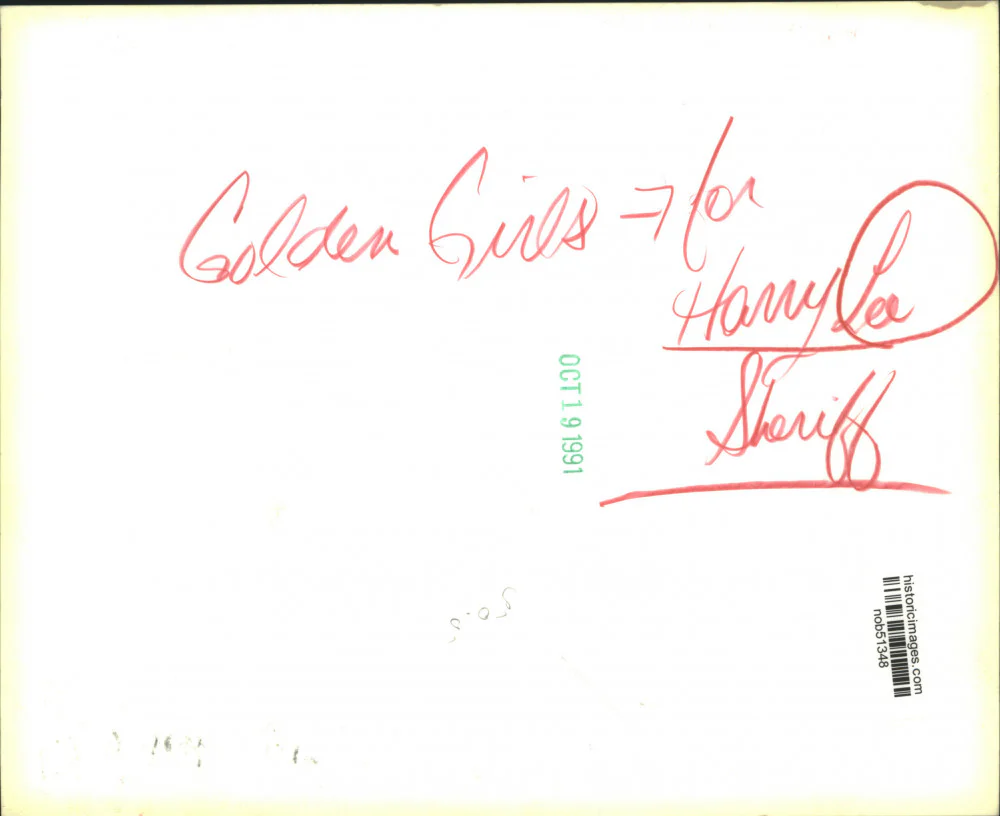 Golden Girls → for
Harry Lee
Sheriff
OCT 19 1991
historicimages.com
nob51348